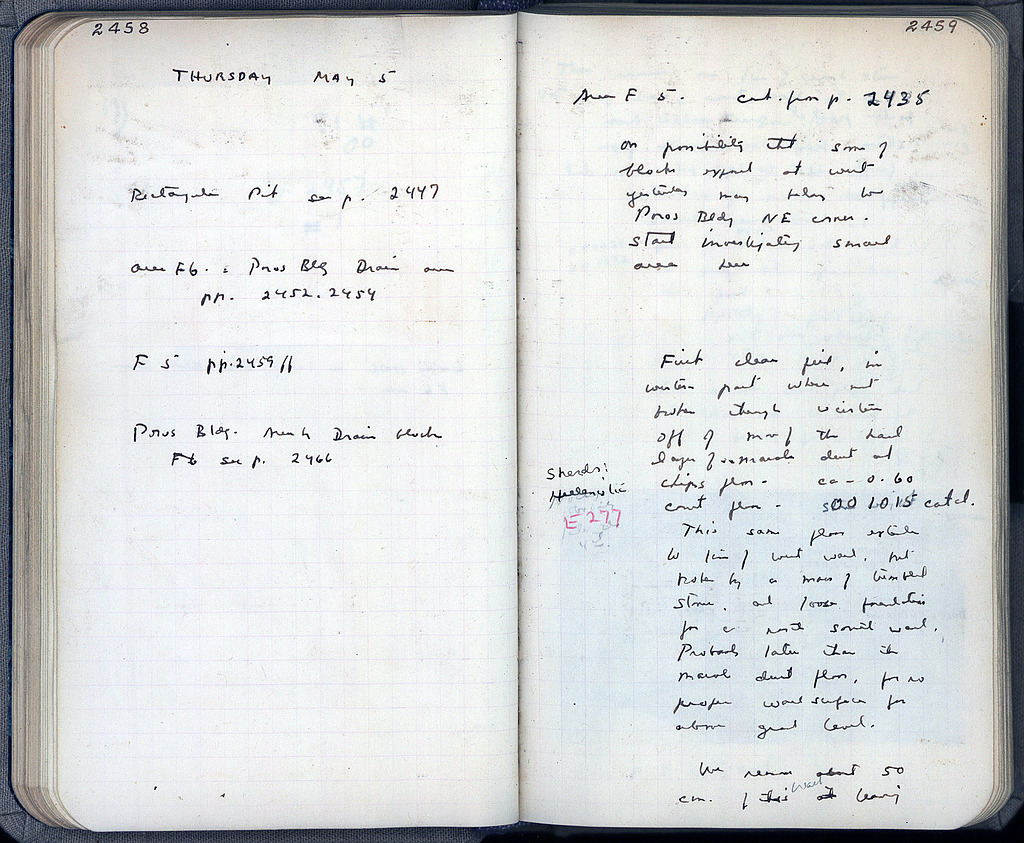 2458
THURSDAY MAY 5
Rectangular Pit see p. 2447
area F6. : Poros Bldg Drain area
pp. 2452.2454
F 5 pp.2459 ff
Poros Bldg. Drain blocks
F6 see p. 2466
2459
Area F 5. cont. from p. 2435
on possibility that some of
blocks exposed at west
yesterday may belong to
Poros Bldg NE corner.
start investigating small
area here
First clean fill, in
western part where not
broken through
off of most of the hard
layer of marble dust and
chips floor - ca - 0.60
court floor -
This same floor extends
to line of west wall, but
broken by a mass of tumbled
stone, and loose foundation
for a north south wall.
Probably later than the
marble dust floor, for no
proper wall surface for
above ground level.
We remove about 50
cm. of this wall leaving
Sherds:
Hellenistic
E 277